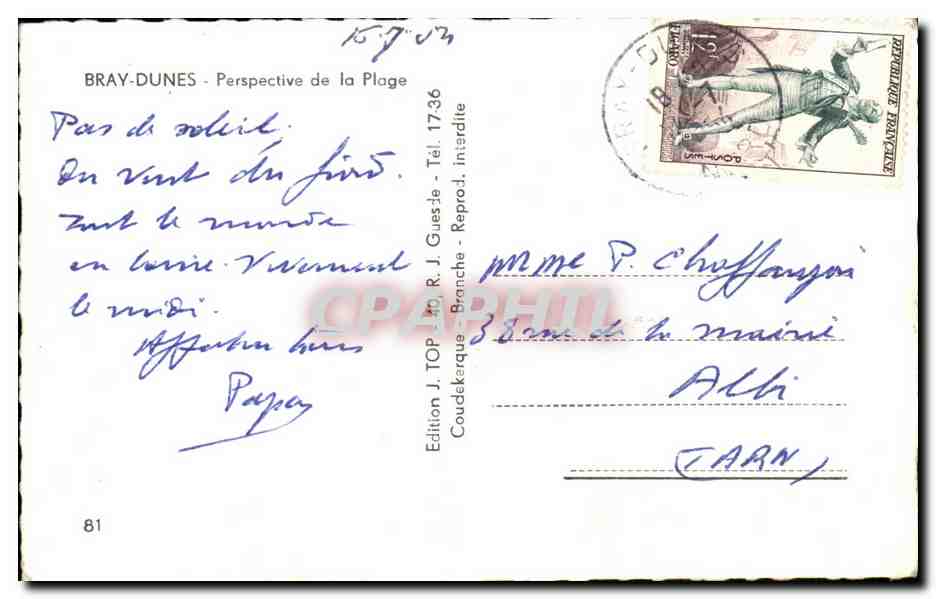 BRAY-DUNES - Perspective de la Plage
Pas de soleil.
Du vent du froid.
Tout le monde
en laine. Vivement
le midi.
Affectueux baisers
Papa
81
Edition J. TOP - 40, R. J. Guesde - Tél. 17-36
Coudekerque - Branche - Reprod. Interdite
CPAPHIL
12F
FIGARO
POSTES
REPUBLIQUE FRANÇAISE
BRAY-DU
18
Mme P. Choffanjon
38 rue de la mairie
Albi
(TARN)